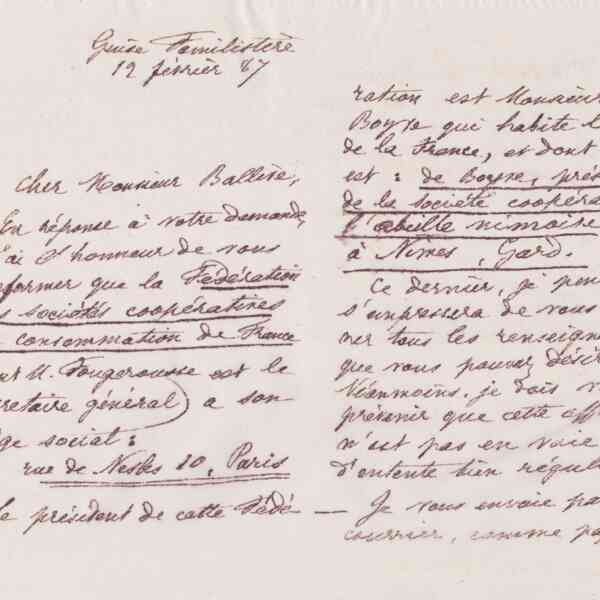 Guise Familistère
12 février 87
Cher Monsieur Ballère,
En réponse à votre demande,
'ai l'honneur de vous
nformer que la Fédération
s sociétés coopératives
consommation de France
M. Fougerousse est le
crétaire général) a son
ège social :
rue de Nesles 10, Paris
le président de cette Fédé
ration est Monsieur
Boyve qui habite l
de la France, et dont
est : de Boyve, prés
de la société coopéra
l'abeille nimoise
à Nimes, Gard.
Ce dernier, je pen
s'empressera de vous
ner tous les renseign
que vous pouvez désir
Néanmoins, je dois v
prévenir que cette
n'est pas en voie
d'entente bien régul
— Je vous envoie pa
courrier, comme pa